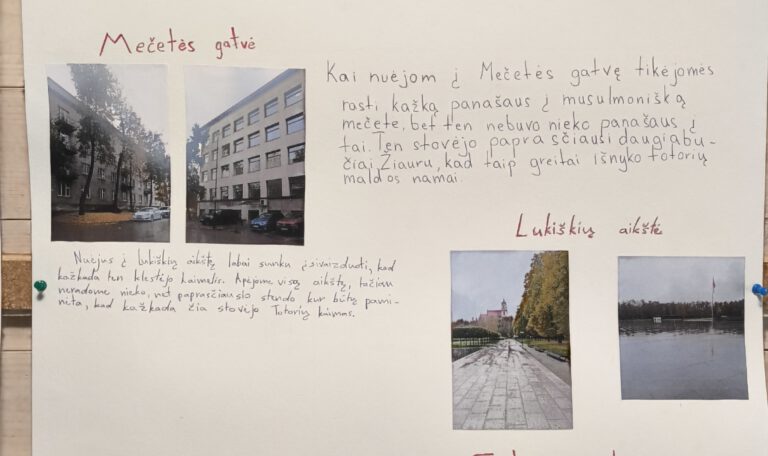 Mečetės gatvė
Kai nuėjom į Mečetės gatvę tikėjomės
rasti kažką panašaus į musulmonišką
mečetę, bet ten nebuvo nieko panašaus į
tai. Ten stovėjo paprasčiausi daugiabu-
čiai. Žiauru, kad taip greitai išnyko totorių
maldos namai
Nuėjus į Lukiškių aikštę labai sunku įsivaizduoti, kad
kažkada ten klestėjo kaimelis. Apėjome visą aikštę, tačiau
neradome nieko, net paprasčiausio stendo kur būtų pami-
nėta, kad kažkada čia stovėjo Totorių kaimas.
Lukiškių aikštė